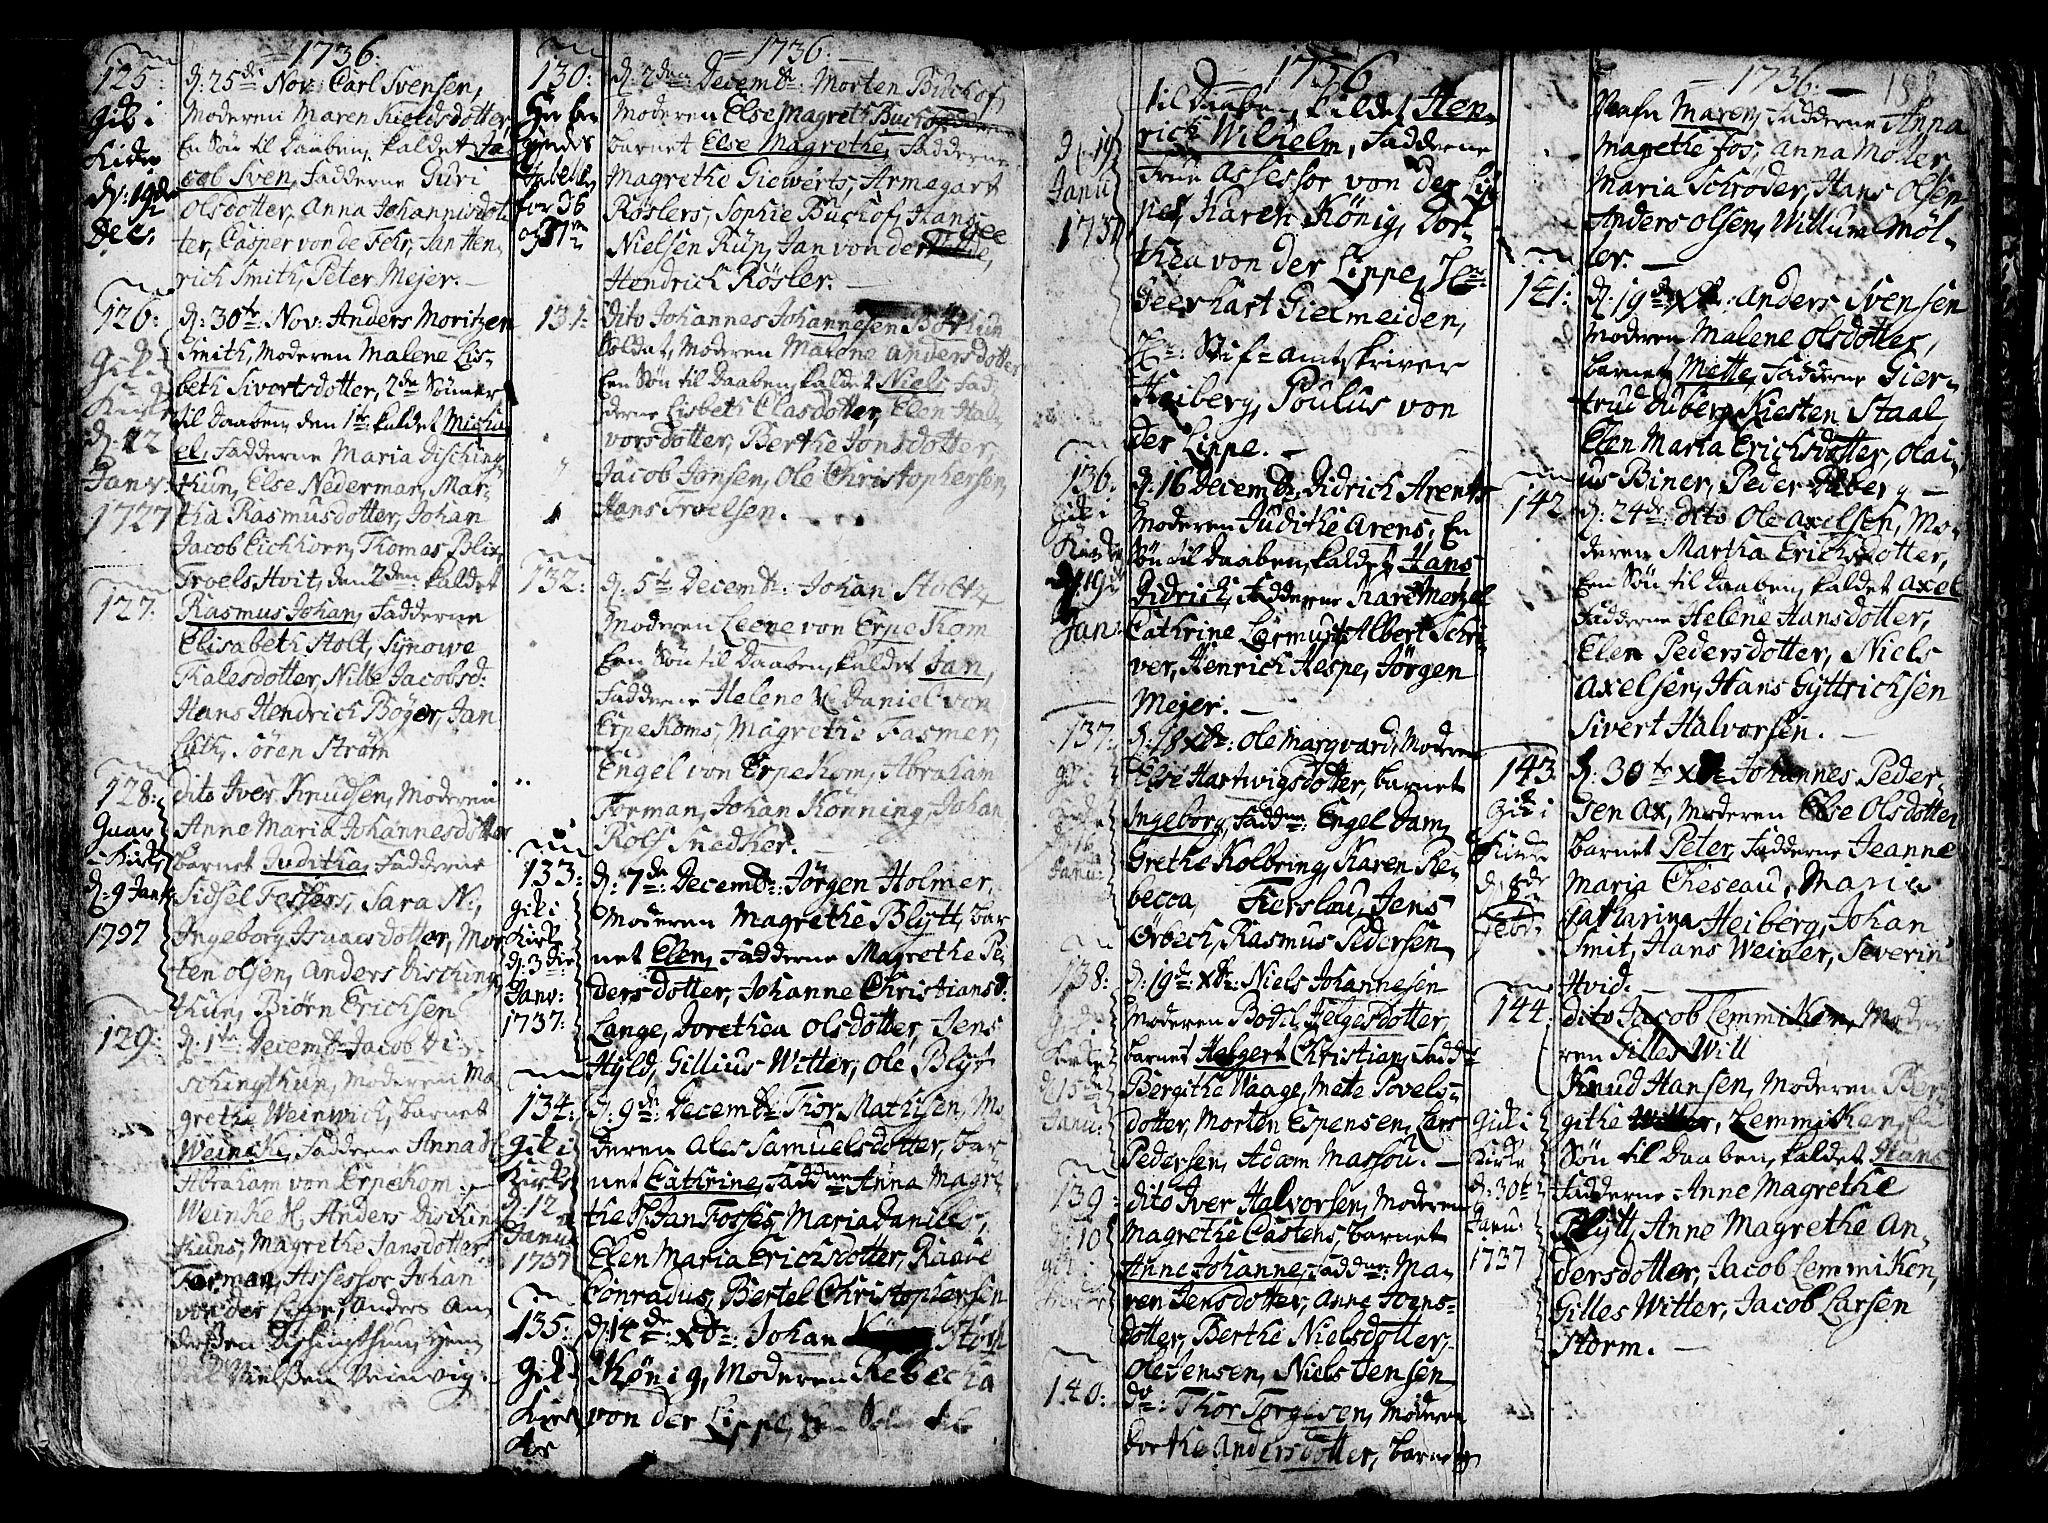 1736.
125:
Gik i
Kirke
d: 19de
Dec:
d: 25de Nov: Carl Svensen,
Moderen Maren Kieldsdotter,
En Søn til Daaben, kaldet Ja-
cob Sven, Fadderne Guri
Olsdotter, Anna Johannisdot-
ter, Casper von de Fehr, Jan Hen-
rich Smith, Peter Mejer.
126:
Gik i
Kirke
d: 22
Janv:
1727
d: 30te: Nov: Anders Moritzen
Smith, Moderen Malene Lis-
beth Sivertsdotter, 2de Sønner
til Daaben, den 1te: kaldet Micha-
el, Fadderne Maria Disching-
thun, Else Nederman, Mar-
tha Rasmusdotter, Johan
Jacob Eichhorn, Thomas Blix,
Troels Hvit, den 2den kaldet
127:
Rasmus Johan, Fadderne
Elisabeth Stolt, Synowe
Kalesdotter, Nille Jacobsd:
Hans Hendrich Böger, Jan
Lutt, Sören Ström
128:
Gaar
i Kirke
d: 9 Janv
1797
dito Iver Knudsen, Moderen
Anne Maria Johannesdotter
barnet Juditha, Fadderne
Sidsel Fosters, Sara N:,
Ingeborg Isaacsdotter, Mor-
ten Olsen, Anders Disching-
thun, Biørn Erichsen
129:
d: 1te Decembr: Jacob Di-
schingthun, Moderen Ma-
grethe Weinwich, barnet
Weinike, Fadderne Anna
Abraham von Erpekom
Weinke Anders Disching-
thuns, Magrethe Jansdotter
Forman, Assessor Johan
von der Lippe, Anders An-
derssen Dischingthun, Hen-
Nielssen Veinvig:
1736.
130:
Gik
for 36
og 37
d: 2den: Decembr: Morten Buchof,
Moderen Else Magreth
barnet Else Magrethe, Fadderne
Magrethe Giewerts, Armegart
Röslers, Sophie Buchof, Hans
Nielsen Rüp, Jan von der
Hendrich Rösler.
131:
dito Johannes Johannesen
Soldat, Moderen Malene Andersdotter
En Søn til Daaben, kaldet Niels Fad-
derne Lisbeth Clasdotter, Elen Hal-
vorsdotter, Berthe Jonsdotter,
Jacob Jonsen, Ole Christophersen,
Hans Troelsen.
132:
d: 5te Decembr: Johan Stoltz
Moderen Leene von Erpekom
En Søn til Daaben, kaldet Jan,
Fadderne Helene Daniel von
Erpekoms, Magrethe Fasmer,
Engel von Erpekom, Abraham
Forman, Johan Könning, Johan
Rolf Snedker.
133:
Gik i
Kirke
d: 3die
Janv:
1737:
d: 7de: Decembr: Jörgen Holmer,
Moderen Magrethe Blytt, bar-
net Elen, Fadderne Magrethe Pe-
dersdotter, Johanne Christiansd:
Lange, Dorethea Olsdotter, Jens
Hyld, Gillius Witter, Ole Blyt
134:
Gik i
Kirke
d: 12
Janv
1737
d: 9de: Decembr: Tior Mathisen, Mo-
deren Ales Samuelsdotter, bar-
net Cathrine, Fadderne Anna Magre-
the Jan Fosses, Maria Daniels,
Elen Maria Erichsdotter, Raave
Conradus, Bertel Christophersen
135:
Gik i
Kirke
d: 14de: Xbr: Johan
König, Moderen Rebecca
von der Lippe, En Søn
1736
d: 19
Janu
1737
til Daaben, kaldet Hen-
rich Wilhelm, Fadderne
Frue Assessor von der Lip-
pe, Karen König, Dort-
thea von der Lippe, Hr:
Geerhart Gielmeiden,
Hr: Stif-amtskriver
Heiberg, Poulus von
der Lippe.
136:
gik i
Kirke
d: 19de
Jan:
d: 16 Decembr: Didrich Arentz
Moderen Judithe Arens, En
Søn til Daaben, kaldet Hans
Didrich, Fadderne Karen Menzel
Cathrine Lermust, Albert Schri-
ver, Henrich Hespe, Jörgen
Mejer.
137:
gik i
Kirke
d: 16
Janu:
d: 18 Xbr: Ole Marqvard, Moderen
Else Hartwigsdotter, barnet
Ingeborg, Fadderne: Engel Dam,
Grethe Kolbring, Karen Re-
becca Fierslew, Jens
Örbech, Rasmus Pedersen
138:
Gik i
Kirke
d: 15de
Janu:
d: 19de: Xbr: Niels Johannesen
Moderen Bodil Helgesdotter,
barnet Helgert Christian, Fadd:
Bergithe Waage, Mete Povels-
dotter, Morten Espensen, Lars
Pedersen, Adam Massou.
139:
d: 10
gik i
dito Iver Halvorsen, Moderen
Magrethe Castens, barnet
Anne Johanne, Fadder: Ma-
ren Jensdotter, Anne Joens-
dotter, Berthe Nielsdotter,
Ole Jensen, Niels Jensen
140:
do: Thor Torgiesen, Moderen
Dorthe Andersdotter, barnet
1736.
Maren, Fadderne Anna
Magrethe Fos, Anna Möller,
Maria Schröder, Hans Olsen
Anders Olsen, Willum Möl-
ler.
141:
d: 19de: Xbr: Anders Svensen
Moderen Malene Olsdotter,
barnet Mette, Fadderne Gier-
trud Duberg, Kiesten Staal,
Elen Maria Erichsdotter, Olai-
us Biner, Peder Duberg
142
d: 24de: Dito Ole Axelsen, Mo-
deren Martha Erichsdotter,
En Søn til Daaben, kaldet Axel
Fadderne Helene Hansdotter,
Elen Pedersdotter, Niels
Axelsen, Hans Gyttrichsen
Sivert Halvorsen.
143.
Gik i
Kirke
d. 8de
Febr.
d: 30te Xbr Johannes Peder-
sen Ax, Moderen Else Olsdotter
barnet Peter, Fadderne Jeanne
Maria Cheseau, Maria
Catharina Heiberg, Johan
Smit, Hans Weiner, Severin
Hvid.
144.
dito Jacob Lemmiken, Mode-
ren Gilles Will
Gik i
Kirke
d: 30te
Janu:
1737
Knud Hansen, Moderen Ber-
githe Lemmiken, En
Søn til Daaben, kaldet Hans
Fadderne Anne Magrethe
Blytt, Anne Magrethe An-
dersdotter, Jacob Lemmiken,
Gilles Witter, Jacob Larsen
Storm.